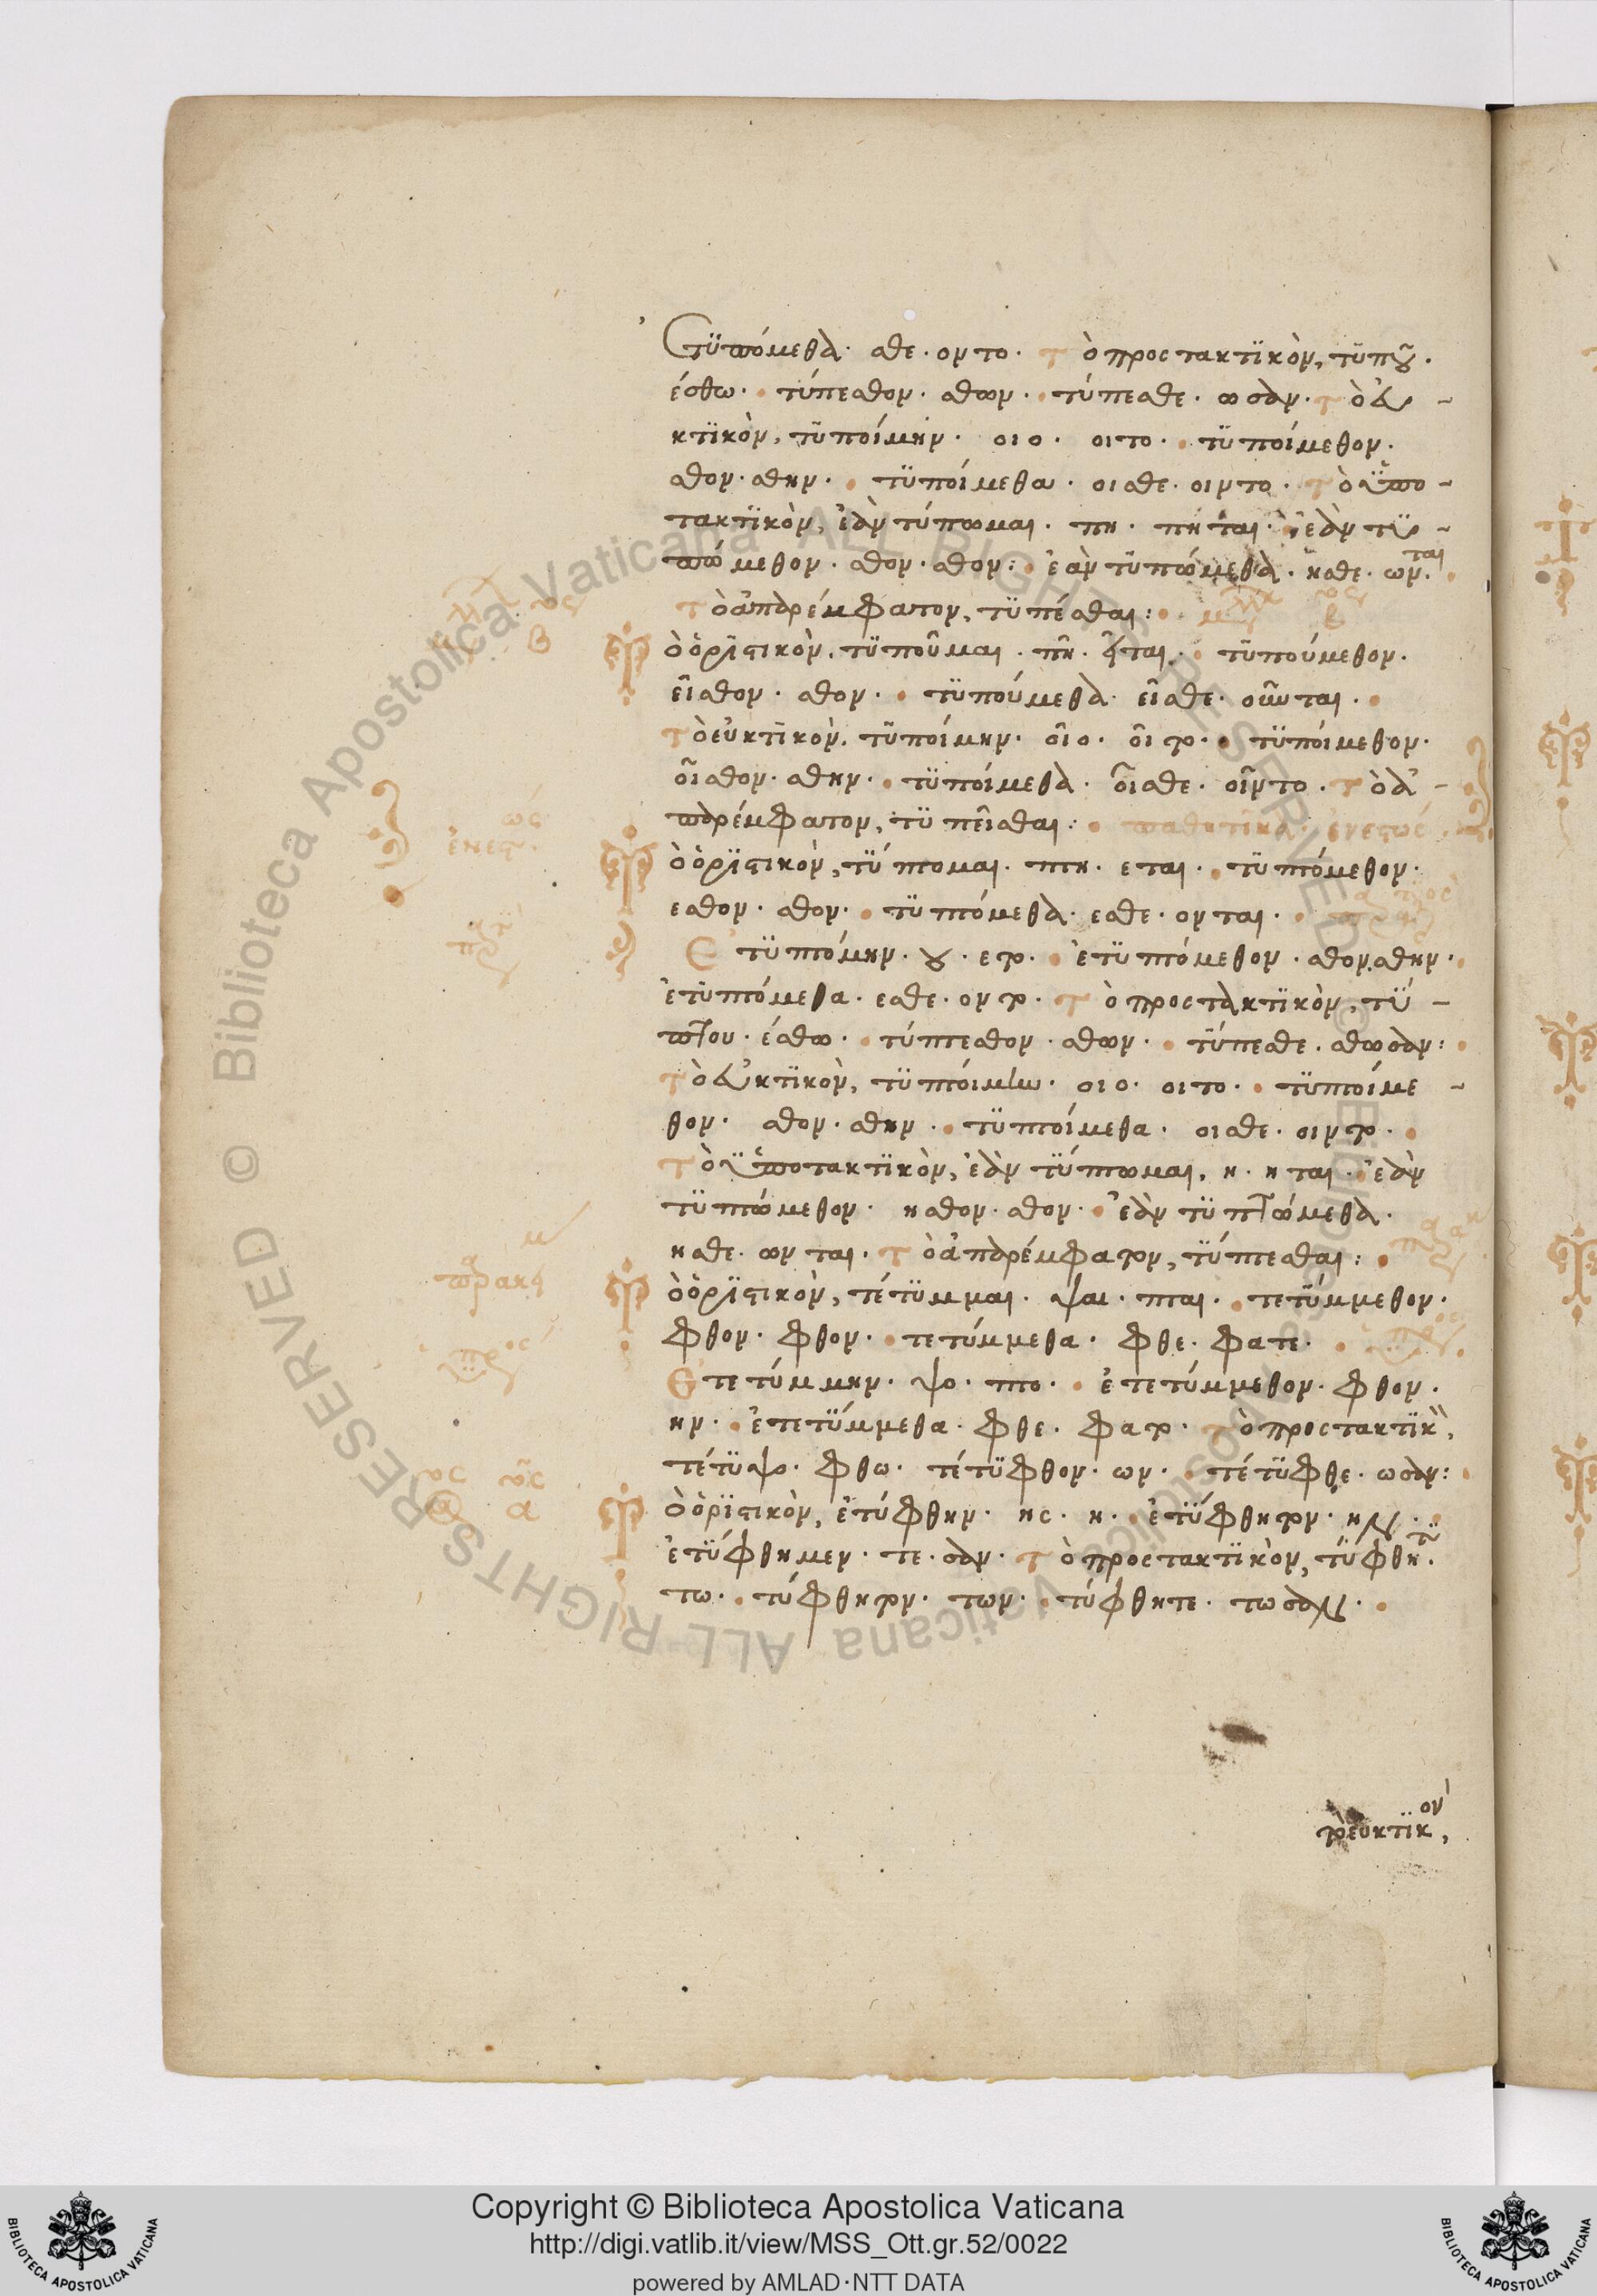 ἐτϋπόμεθα· σθε· οντο· τὸ προστακτϊκὸν, τϋποῦ·
έσθω· τύπεσθον· σθων· τύπεσθε· ωσαν· τὸ εὐ-
κτϊκὸν, τϋποίμην· οιο· οιτο· τϋποίμεθον·
σθον· σθην· τϋποίμεθα· οισθε· οιντο· τὸ ὑπο-
τακτϊκὸν, ἐὰν τύπωμαι· πη· πηται· ἐὰν τϋ-
πώμεθον· σθον· σθον: ἐὰν τϋπώμεθα· ησθε· ωνται·
τὸ ἀπαρέμφατον, τϋπέσθαι: μβ
ὁ ὁρϊστικὸν, τϋποῦμαι· πῆ· ῆται· τϋπούμεθον·
εῖσθον· σθον· τϋπούμεθα· εῖσθε· οῦνται·
τὸ εὐκτϊκὸν, τϋποίμην· οῖο· οῖτο· τϋποίμεθον·
οῖσθον· σθην· τϋποίμεθα· οῖσθε· οῖντο· τὸ ἀ-
παρέμφατον, τϋπεῖσθαι: παθητικὰ· ἐνεστώς
ἐνεστως
ὁ ὁρϊστικὸν, τϋπτομαι· πτη· εται· τϋπτόμεθον·
εσθον· σθον· τϋπτόμεθα· εσθε· ονται·
Ἐτϋπτόμην· ου· ετο· ἐτϋπτόμεθον· σθον· σθην·
ἐτϋπτόμεθα· εσθε· οντο· τὸ προστακτϊκὸν, τϋ-
πτου· έσθω· τύπτεσθον· σθων· τύπεσθε· σθωσαν:
τὸ εὐκτϊκὸν, τϋπτόιμην· οιο· οιτο· τϋπτοίμε-
θον· σθον· σθην· τϋπτοίμεθα· οισθε· οιντο·
τὸ ὑποτακτϊκὸν, ἐὰν τϋπτωμαι, η· ηται· ἐὰν
τϋπτώμεθον· ησθον· σθον· ἐὰν τϋπτώμεθα·
ησθε· ωνται· τὸ ἀπαρέμφατον, τϋπτεσθαι:
παρακ
ὁ ὁρϊστικὸν, τέτϋμμαι· ψαι· πται· τετϋμμεθον·
φθον· φθον· τετύμμεθα· φθε· φατε·
Ἐτετύμμην· ψο· πτο· ἐτετύμμεθον· φθον·
ην· ἐτετϋμμεθα· φθε· φατο· τὸ προστακτϊκὸν,
τέτϋψο· φθω· τέτϋφθον· ων· τέτϋφθε· ωσαν:
α α
ὁ ὁρϊστικὸν, ἐτύφθην· ης· η· ἐτϋφθητον· ην·
ἐτϋφθημεν· τε· σαν· τὸ προστακτϊκὸν, τϋφθητι·
τω· τύφθητον· των· τύφθητε· τωσαν·
τὸ εὐκτϊκὸν,
ALL RIGHTS RESERVED © Biblioteca Apostolica Vaticana
Copyright © Biblioteca Apostolica Vaticana
http://digi.vatlib.it/view/MSS_Ott.gr.52/0022
powered by AMLAD·NTT DATA
BIBLIOTECA APOSTOLICA VATICANA
BIBLIOTECA APOSTOLICA VATICANA